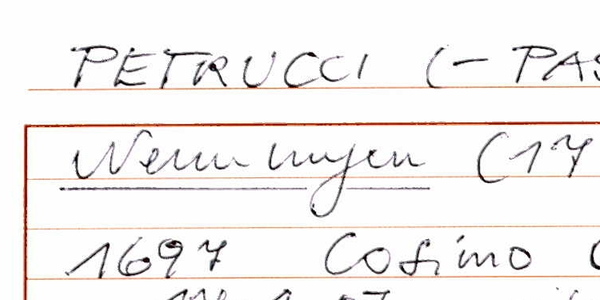 PETRUCCI (- PAS
Nennungen (17
1697 Cosimo